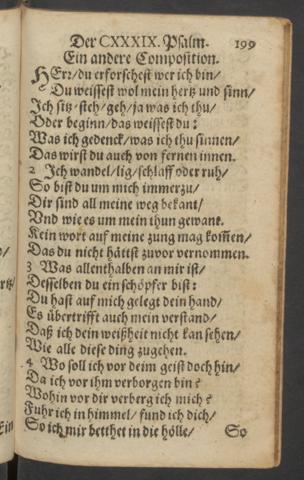 Der CXXXIX. Psalm. 199
Ein andere Composition.
HErr/du erforschest wer ich bin/
Du weissest wol mein hertz und sinn/
Ich sitz/steh/geh/ja was ich thu/
Oder beginn/das weissest du:
Was ich gedenck/was ich thu sinnen/
Das wirst du auch von fernen innen.
2 Ich wandel/lig/schlaff oder ruh/
So bist du um mich immerzu/
Dir sind all meine weg bekant/
Vnd wie es um mein thun gewant.
Kein wort auf meine zung mag kom̃en/
Das du nicht hättst zuvor vernommen.
3 Was allenthalben an mir ist/
Desselben du ein schöpfer bist:
Du hast auf mich gelegt dein hand/
Es übertrifft auch mein verstand/
Daß ich dein weißheit nicht kan sehen/
Wie alle diese ding zugehen.
4 Wo soll ich vor deim geist doch hin/
Da ich vor ihm verborgen bin?
Wohin vor dir verberg ich mich?
Fuhr ich in himmel/fund ich dich/
So ich mir betthet in die hölle/
So